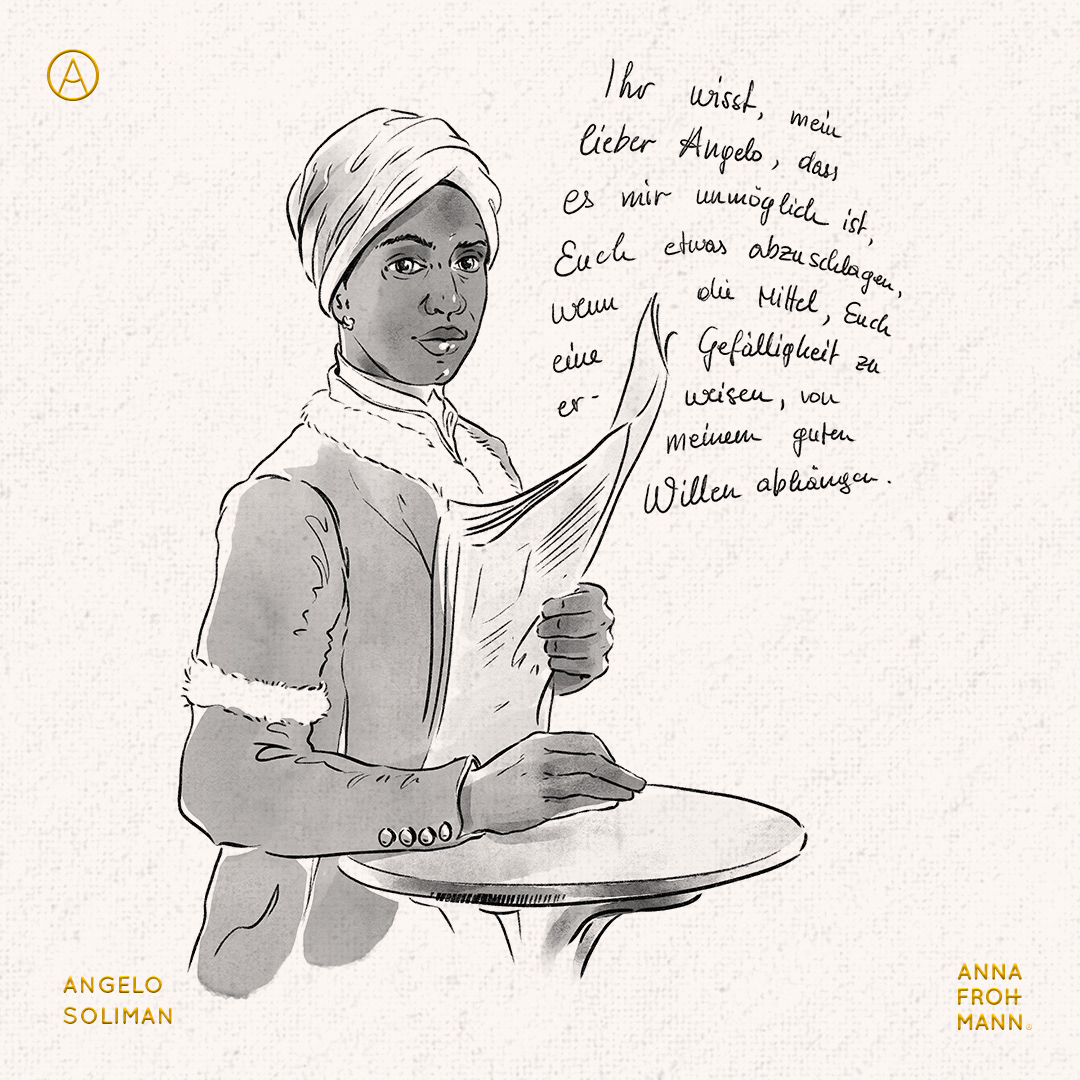 Ihr wisst, mein
lieber Angelo, dass
es mir unmöglich ist,
Euch etwas abzuschlagen,
wenn die Mittel, Euch
eine Gefälligkeit zu
er- weisen, von
meinem guten
Willen abhängen.
ANGELO
SOLIMAN
ANNA
FROH
MANN